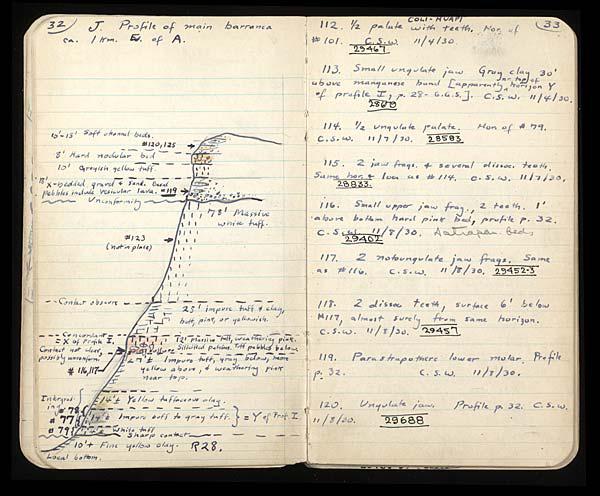 32
J. Profile of main barranca
ca. 1 km. E. of A.
10'-15' Soft channel beds.
#120,125
8' Hard nodular bed
10' Greyish yellow tuff.
X-bedded gravel & sand. Basal
pebbles include vesicular lava.
#119
Unconformity
78' Massive
white tuff.
#123
(not in place)
Contact obscure
25' impure tuff & clay,
buff, pink, or yellowish.
Concordant
= X of Profile I.
12' Massive tuff, weathering pink.
Silicified patches. Tuff pebbles below
Contact not clear,
possibly unconform.
27'± Impure tuff, gray below, more
yellow above, & weathering pink
near top.
#116,117
Intergrad
ing
14'± Yellow tuffaceous clay.
#78
#77
Impure buff to gray tuff.
= Y of Prof. I
#79
White tuff
Sharp contact
10'+ Fine yellow clay.
R28.
Local bottom.
COLI-HUAPI
33
112. 1/2 palate with teeth. Hor. of
#101. C.S.W. 11/4/30.
29467
113. Small ungulate jaw Gray clay 30'
above manganese band [apparently
or top of
horizon Y
of profile I, p. 28- G.G.S.]. C.S.W. 11/4/30.
114. 1/2 ungulate palate. Hor of #79.
C.S.W. 11/7/30. 28583
115. 2 jaw frags. & several dissoc. teeth.
Same hor. & loc. as #114. C.S.W. 11/7/30.
28833
116. Small upper jaw frag., 2 teeth. 1'
above bottom hard pink bed, profile p. 32.
C.S.W. 11/8/30.
29462
Astrapon. beds
117. 2 notoungulate jaw frags. Same
as #116. C.S.W. 11/8/30. 29452-3
118. 2 dissoc teeth, surface 6' below
#117, almost surely from same horizon.
C.S.W. 11/8/30. 29457
119. Parastrapothere lower molar. Profile
p. 32. C.S.W. 11/8/30.
120. Ungulate jaw. Profile p. 32. C.S.W.
11/8/30. 29688